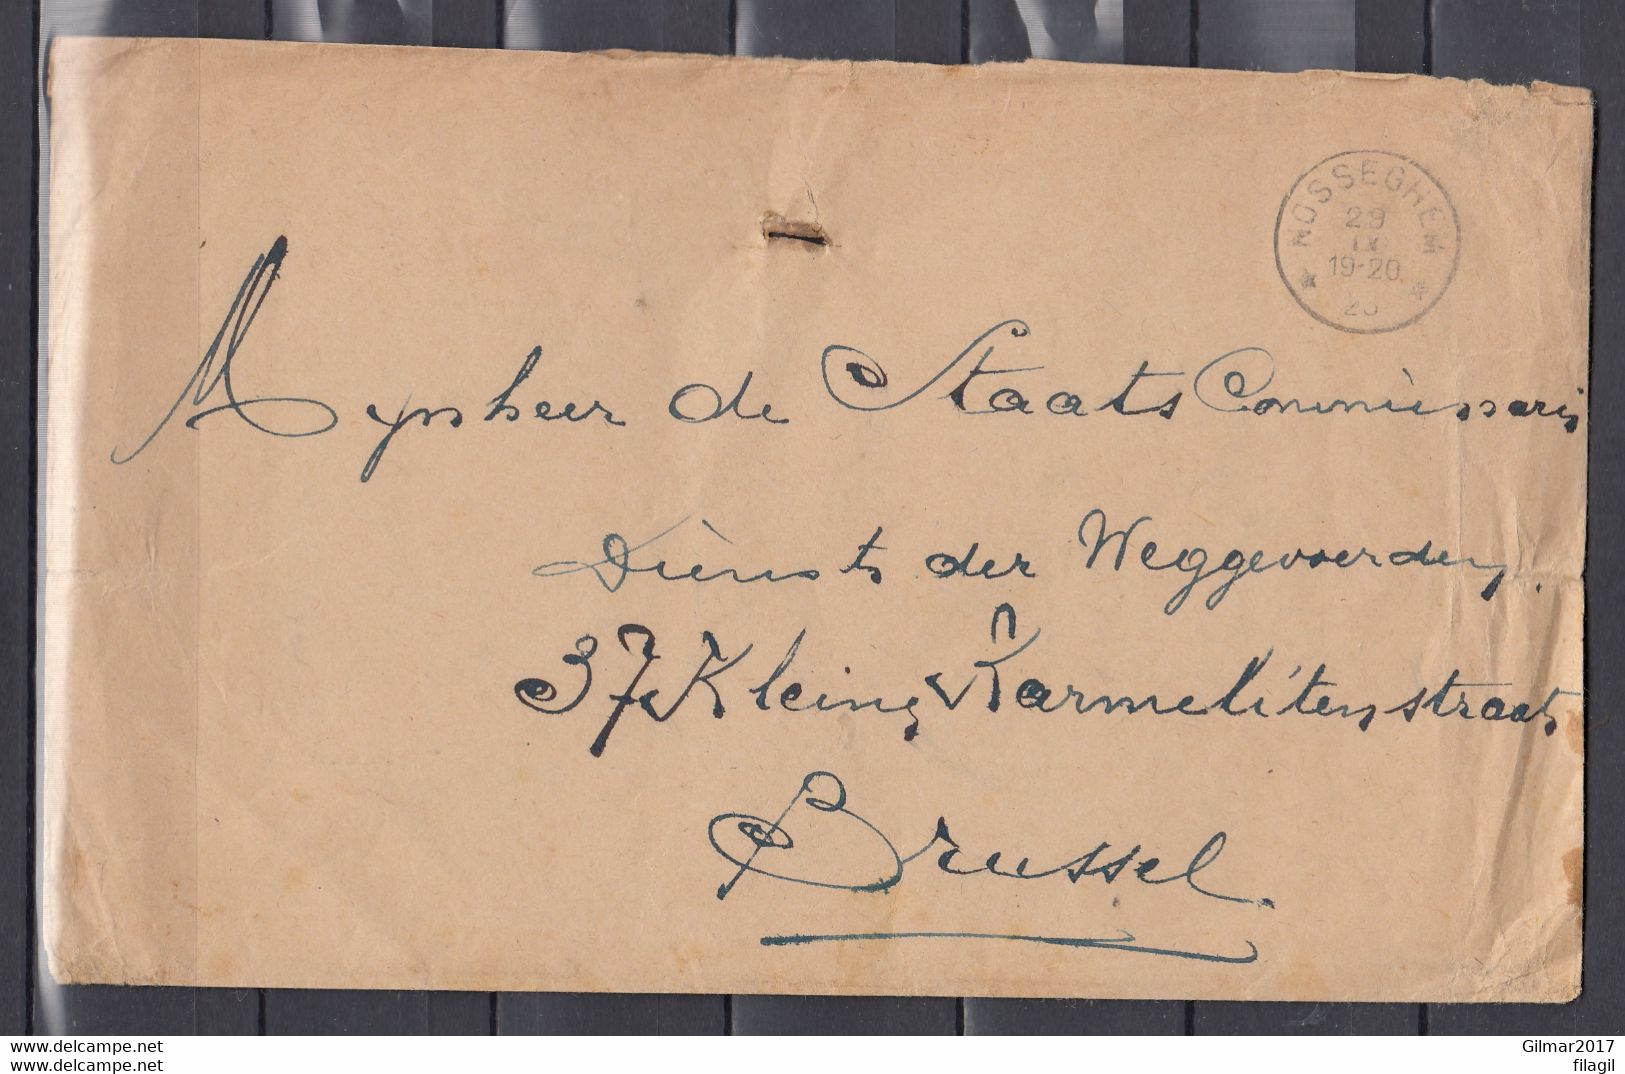 NOSSEGHEM
29
IX
19-20
Mynheer de Staats Commissaris
Dienst der Weggevoerden.
37 Kleine Karmelitenstraat
Brussel
www.delcampe.net
www.delcampe.net
Gilmar2017
filagil